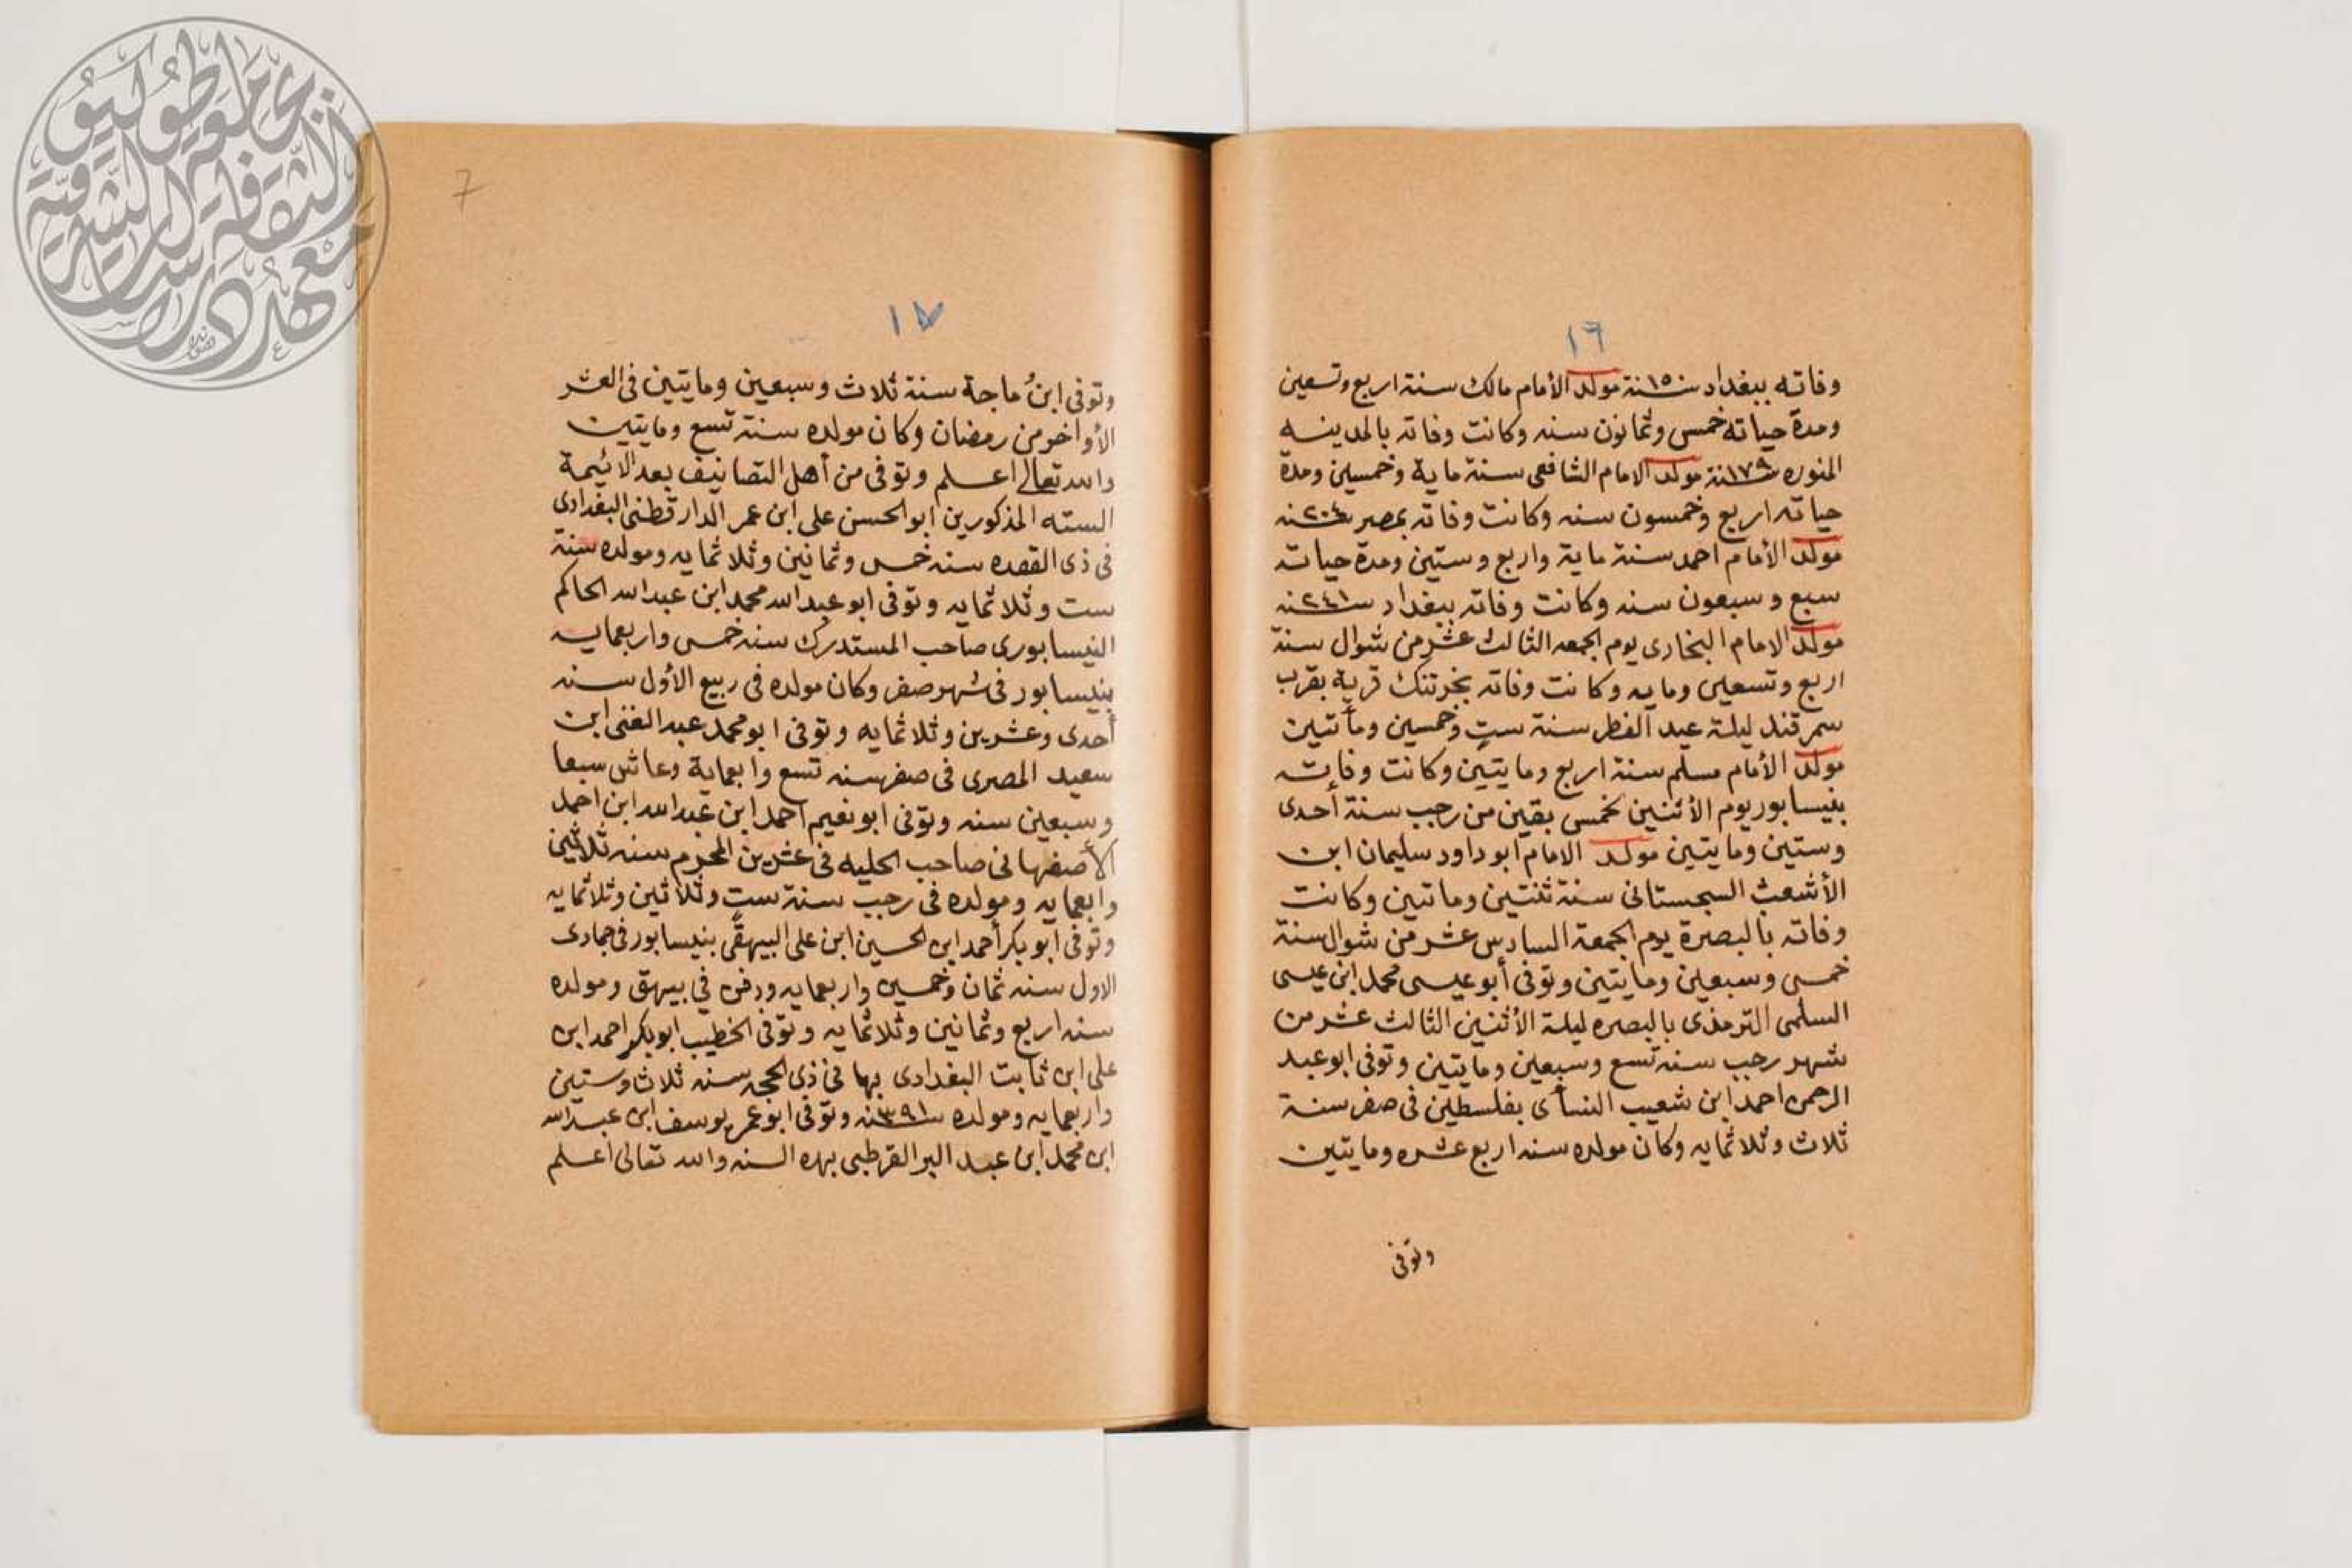 ١٦
وفاته ببغداد سنة ١٥٠ مولد الأمام مالك سنة اربع وتسعين
ومدة حياته خمس وثمانون سنه وكانت وفاته بالمدينه
المنوره سنة ١٧٩ مولد الامام الشافعى سنة ماية وخمسين ومدة
حياته اربع وخمسون سنه وكانت وفاته بمصر سنه ٢٠٤
مولد الأمام احمد سنة ماية واربع وستين ومدة حياته
سبع وسبعون سنه وكانت وفاته ببغداد سنه ٢٤١
مولد الامام البخارى يوم الجمعه الثالث عشر من شوال سنة
اربع وتسعين ومايه وكانت وفاته بخرتنك قرية بقرب
سمرقند ليلة عيد الفطر سنة ستٍ وخمسين ومأتين
مولد الأمام مسلم سنة اربع ومايتين وكانت وفاته
بنيسابور يوم الأثنين لخمس بقين من رجب سنة أحدى
وستين ومايتين مولد الامام ابو داود سليمان ابن
الأشعث السجستانى سنة ثنتين وماتين وكانت
وفاته بالبصرة يوم الجمعة السادس عشر من شوال سنة
خمس وسبعين ومايتين وتوفى أبو عيسى محمد ابن عيسى
السلمى الترمذى بالبصره ليلة الأثنين الثالث عشر من
شهر رجب سنه تسع وسبعين ومايتين وتوفى ابو عبد
الرحمن احمد ابن شعيب النسأى بفلسطين فى صفر سنة
ثلاث وثلاثمايه وكان مولده سنه اربع عشره ومايتين
وتوفى
7
١٧
وتوفى ابنُ ماجة سنة ثلاث وسبعين ومايتين فى العشر
الأواخر من رمضان وكان مولده سنة تسع ومايتين
والله تعالى اعلم وتوفى من أهل التصانيف بعد الائيمة
السته المذكورين ابو الحسن على ابن عمر الدار قطنى البغدادى
فى ذى القعده سنه خمس وثمانين وثلاثمايه ومولده سنة
ست وثلاثمايه وتوفى ابو عبد الله محمد ابن عبد الله الحاكم
النيسابورى صاحب المستدرك سنه خمس واربعمايه
بنيسابور فى شهر صفر وكان مولده فى ربيع الأول سنه
أحدى وعشرين وثلاثمايه وتوفى ابو محمد عبد الغنى ابن
سعيد المصرى فى صفر سنه تسع وابعماية وعاش سبعا
وسبعين سنه وتوفى ابو نعيم احمد ابن عبد الله ابن احمد
الأصفهانى صاحب الحليه فى عشرين المحرم سنه ثلاثين
وابعمايه ومولده فى رجب سنة ست وثلاثين وثلاثمايه
وتوفى ابو بكر أحمد ابن الحسين ابن على البيهقى بنيسابور فى جمادى
الاول سنه ثمان وخمسين واربعمايه ودفن في بيهق ومولده
سنه اربع وثمانين وثلاثمايه وتوفى الخطيب ابو بكر احمد ابن
على ابن ثابت البغدادى بها فى ذى الحجه سنه ثلاث وستين
واربعمايه ومولده سنه ٣٩١ وتوفى ابو عمر يوسف ابن عبد الله
ابن محمد ابن عبد البر القرطبى بهذه السنه والله تعالى اعلم